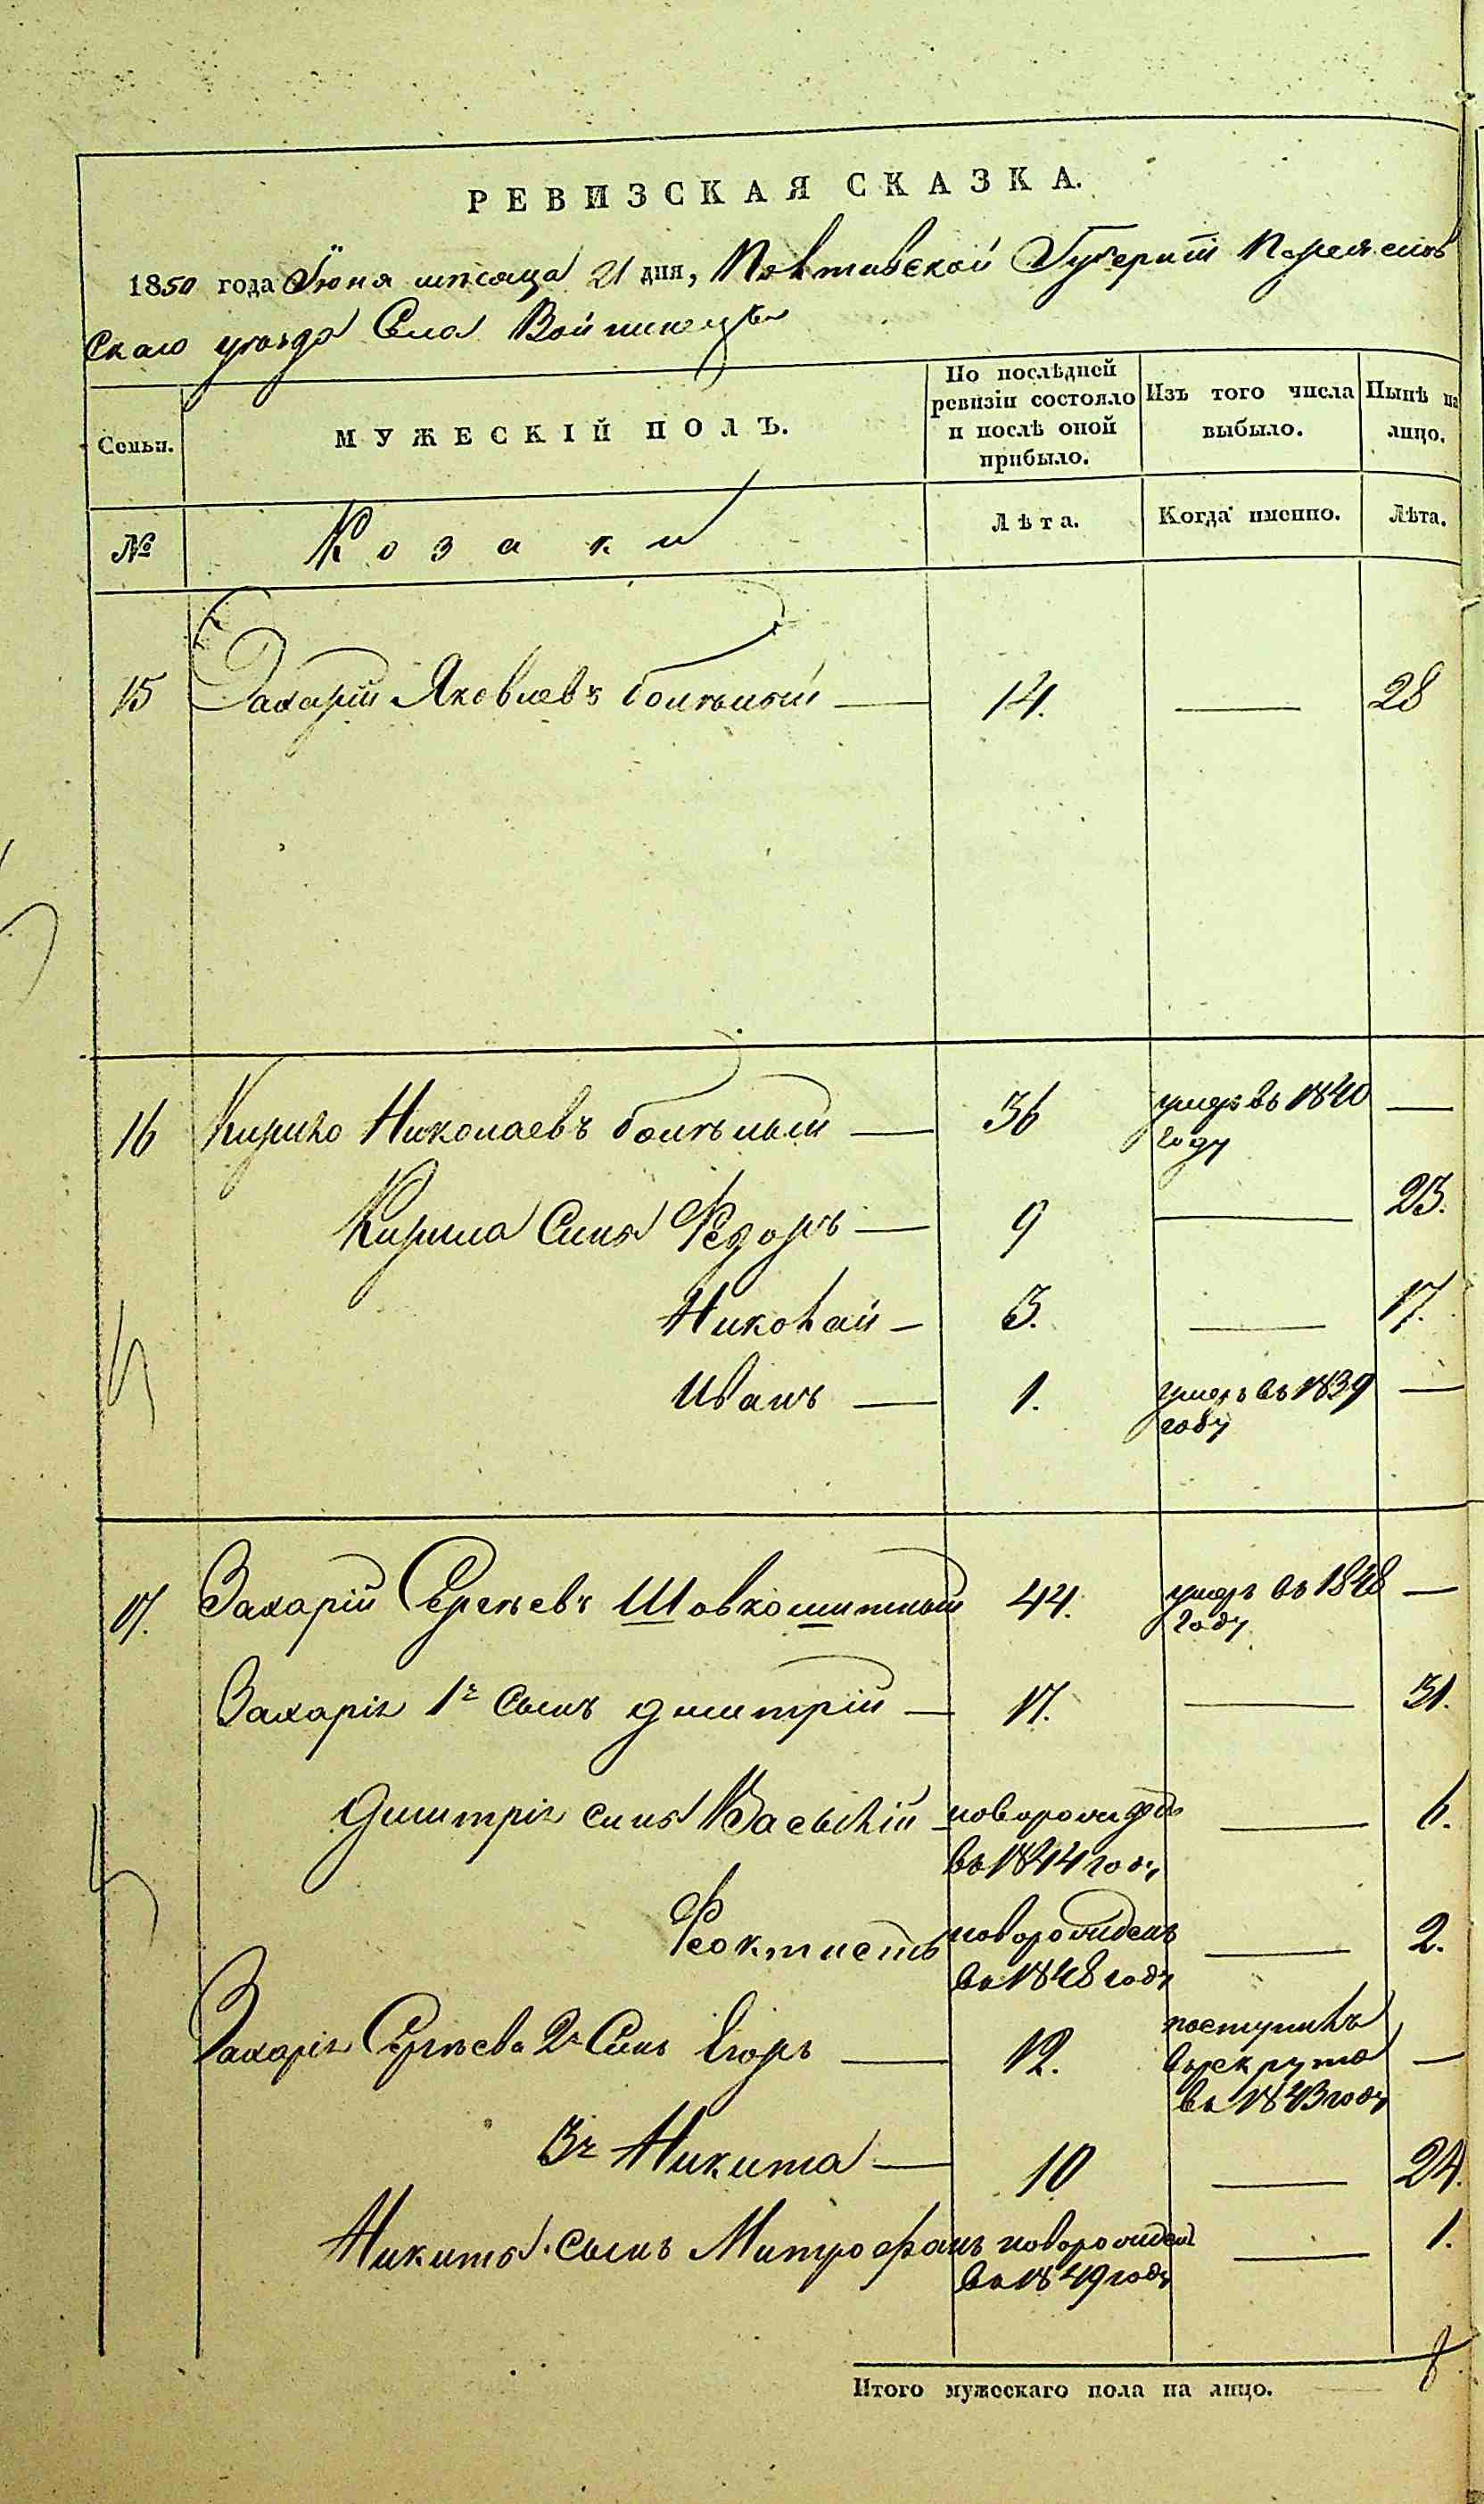 РЕВИЗСКАЯ СКАЗКА.
1850 года Июня мѣсяца 21 дня, Полтавской Губерніи Переяслов
скаго уѣзда Села Войтинецъ
Семьи.
МУЖЕСКІЙ ПОЛЪ.
По послѣдней ревизіи состояло и послѣ оной прибыло.
Изъ того числа выбыло.
Нынѣ на лицо.
№
Козаки
Лѣта.
Когда именно.
Лѣта.
15 Захарій Яковлевъ — 14. — 28
16 Кирило Николаевъ — 36 умеръ въ 1840 году —
Кирила Сынъ Федоръ — 9 — 23.
Николай — 3. — 17.
Иванъ — 1. умеръ въ 1839 году —
17. Захарій Сергѣевъ Шовкошитный 44. умеръ въ 1848 году —
Захарія 1й Сынъ Дмитрій — 17. — 31.
Дмитрія сынъ Василій новорожденъ въ 1844 году — 6.
Феоктистъ новорожденъ въ 1848 году — 2.
Захарія Сергѣева 2й Сынъ Егоръ — 12. поступилъ в рекрута въ 1843 году —
3й Никита — 10 — 24.
Никиты сынъ Митрофанъ новорожденъ въ 1849 году — 1.
Итого мужескаго пола на лицо. 8